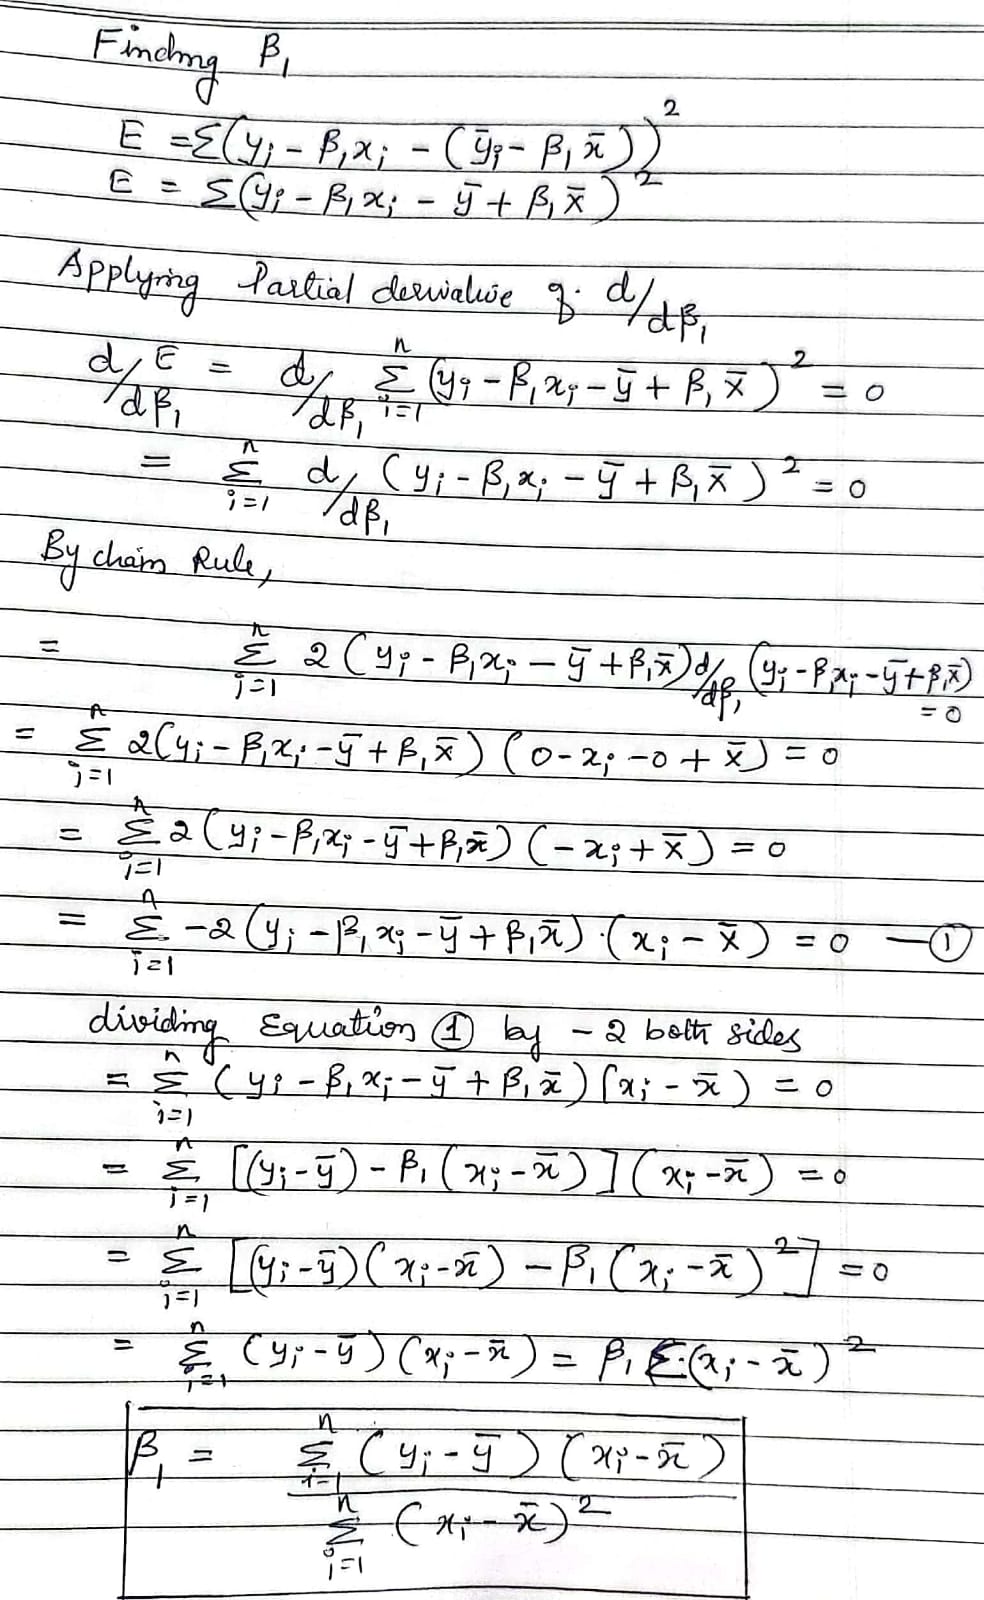 Finding β₁
E = Σ(yᵢ - β₁xᵢ - (ȳᵢ - β₁x̄))²
E = Σ(yᵢ - β₁xᵢ - ȳ + β₁x̄)²
Applying Partial derivative of d/dβ₁
d/dβ₁ E = d/dβ₁ Σⁿᵢ₌₁ (yᵢ - β₁xᵢ - ȳ + β₁x̄)² = 0
= Σⁿᵢ₌₁ d/dβ₁ (yᵢ - β₁xᵢ - ȳ + β₁x̄)² = 0
By chain Rule,
= Σⁿᵢ₌₁ 2(yᵢ - β₁xᵢ - ȳ + β₁x̄) d/dβ₁ (yᵢ - β₁xᵢ - ȳ + β₁x̄) = 0
= Σⁿᵢ₌₁ 2(yᵢ - β₁xᵢ - ȳ + β₁x̄) (0 - xᵢ - 0 + x̄) = 0
= Σⁿᵢ₌₁ 2(yᵢ - β₁xᵢ - ȳ + β₁x̄) (-xᵢ + x̄) = 0
= Σⁿᵢ₌₁ -2(yᵢ - β₁xᵢ - ȳ + β₁x̄) · (xᵢ - x̄) = 0 — ①
dividing Equation ① by -2 both sides
= Σⁿᵢ₌₁ (yᵢ - β₁xᵢ - ȳ + β₁x̄) (xᵢ - x̄) = 0
= Σⁿᵢ₌₁ [(yᵢ - ȳ) - β₁(xᵢ - x̄)] (xᵢ - x̄) = 0
= Σⁿᵢ₌₁ [(yᵢ - ȳ)(xᵢ - x̄) - β₁(xᵢ - x̄)²] = 0
= Σⁿᵢ₌₁ (yᵢ - ȳ)(xᵢ - x̄) = β₁ Σ(xᵢ - x̄)²
β₁ = Σⁿᵢ₌₁ (yᵢ - ȳ)(xᵢ - x̄)
Σⁿᵢ₌₁ (xᵢ - x̄)²